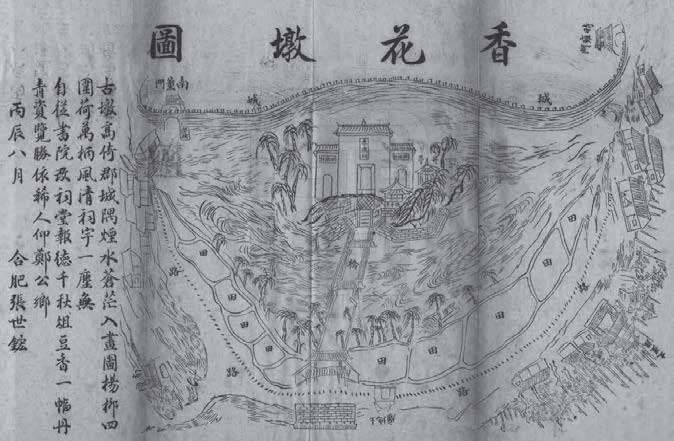 香花墩圖
古墩高倚郡城隅煙水蒼茫入畫圖楊柳四
圍荷萬柄風清祠宇一塵無
自從書院改祠堂報德千秋俎豆香一幅丹
青資覽勝依稀人仰鄭公鄉
丙辰八月 合肥張世鎔
南薰門
城
城
橋
田
田
田
田
田
田
田
田
田
路
路
路